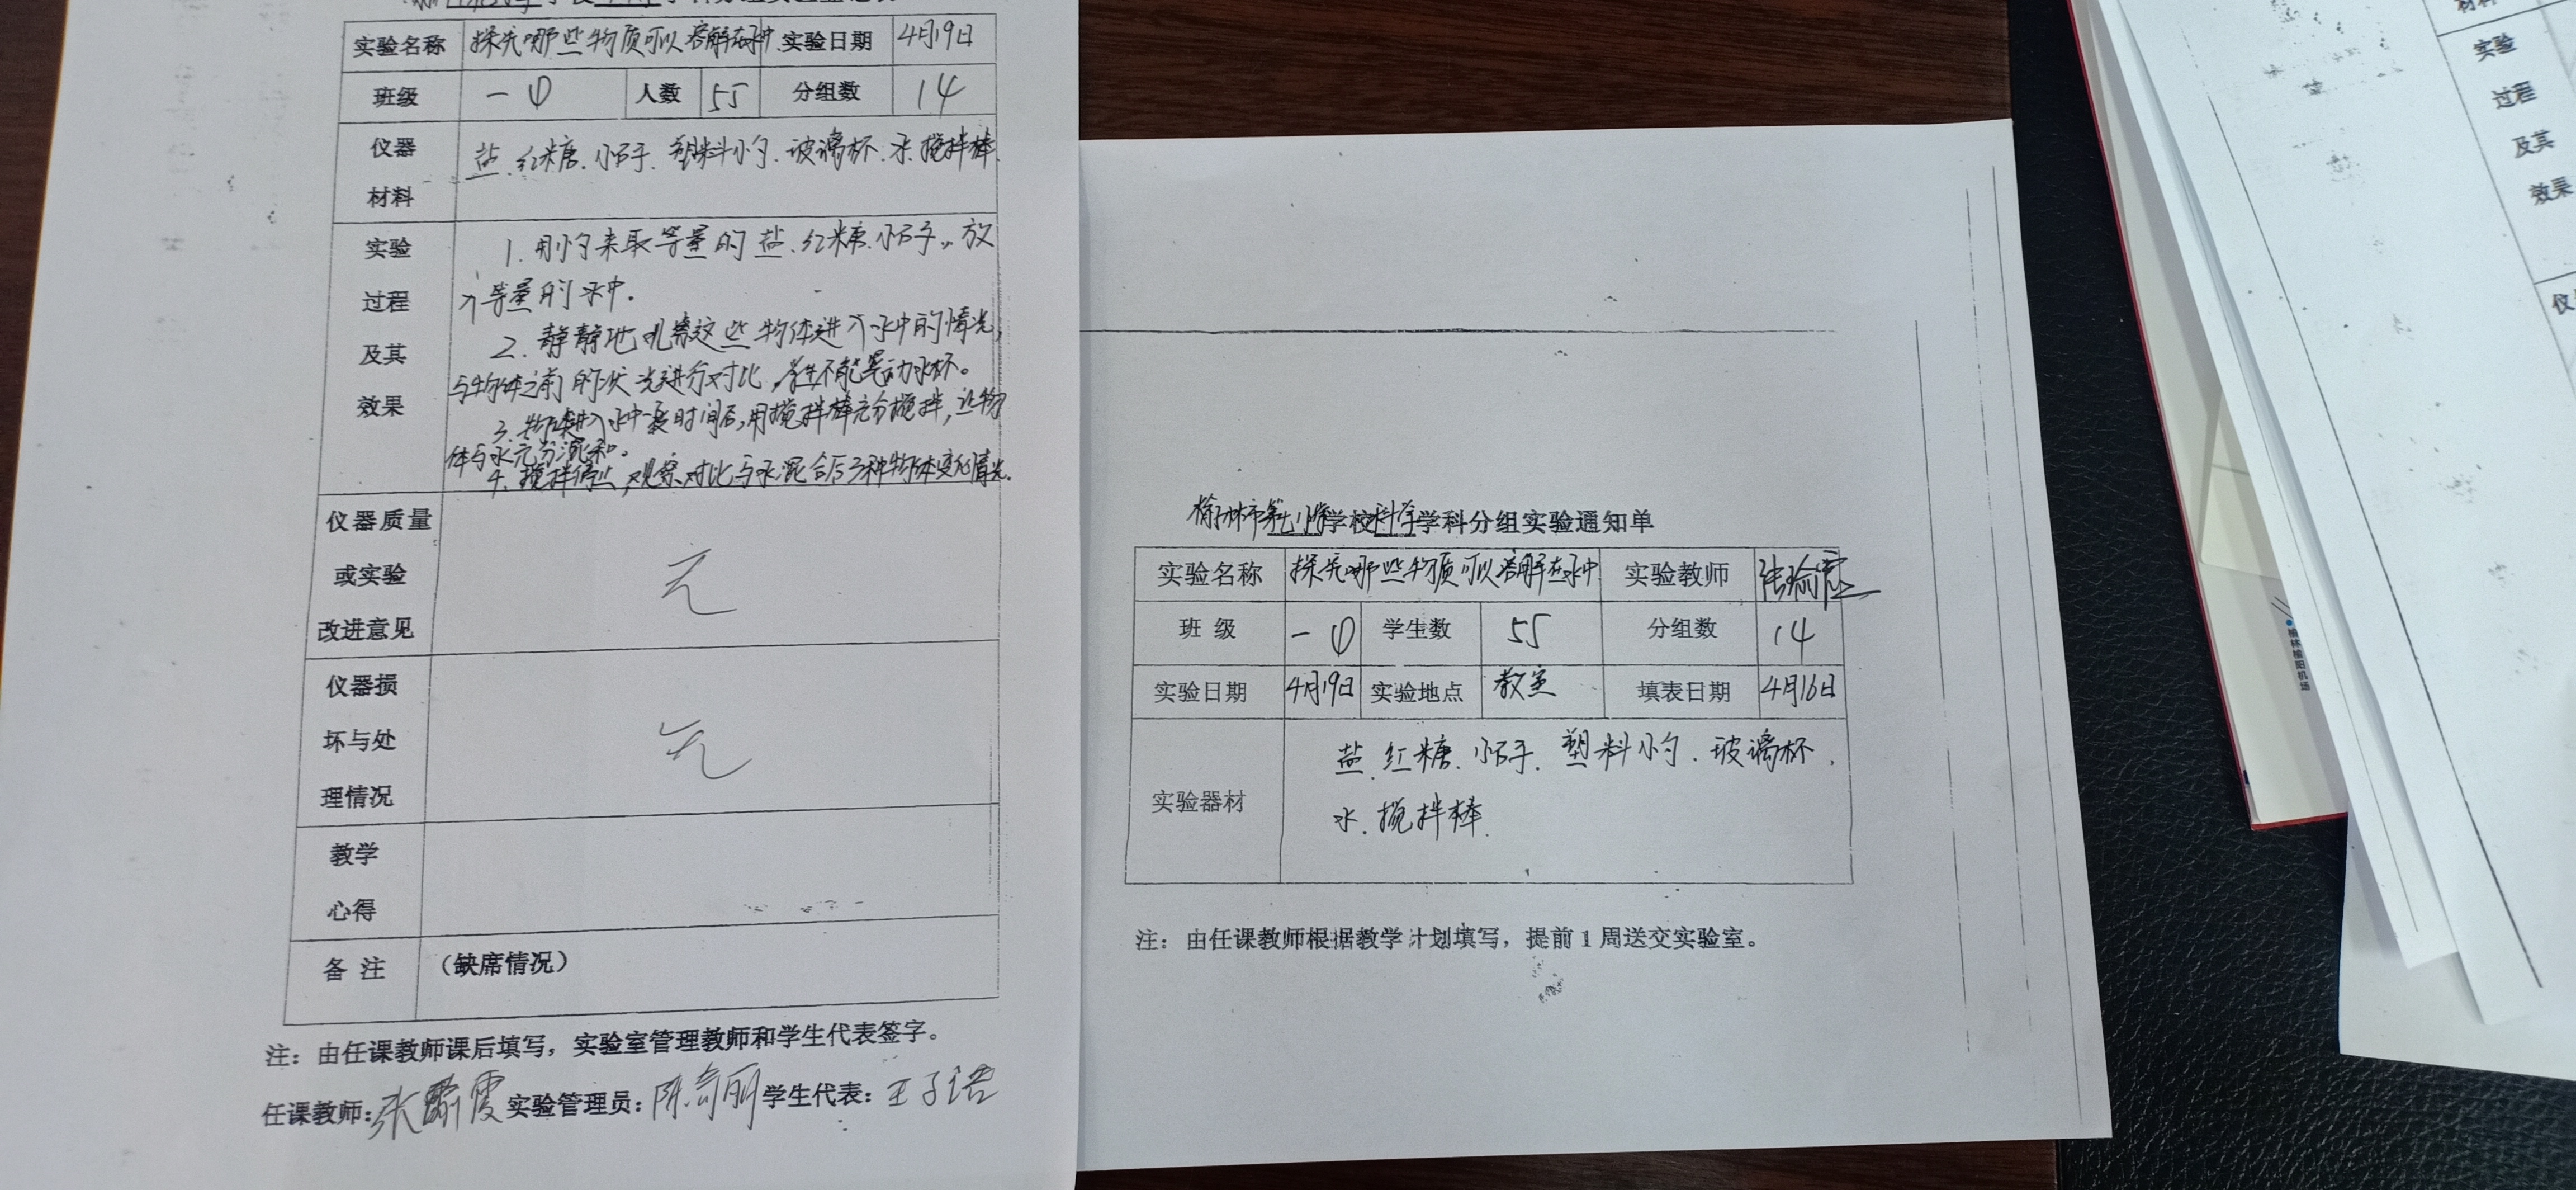 实验名称 探究哪些物质可以溶解在水中 实验日期 4月19日
班级 一① 人数 55 分组数 14
仪器
材料
盐.红糖.小石子.塑料小勺.玻璃杯.水.搅拌棒.
实验
过程
及其
效果
1.用小勺来取等量的盐.红糖.小石子,放
入等量的水中.
2.静静地观察这些物体进入水中的情况,
与物体之前的状况进行对比,学生不能晃动水杯。
3.物体进入水中一段时间后,用搅拌棒充分搅拌,让物
体与水充分混和。
4.搅拌停止,观察对比与水混合后3种物体变化情况.
仪器质量
或实验
改进意见
无
仪器损
坏与处
理情况
无
教学
心得
备 注 （缺席情况）
注：由任课教师课后填写，实验室管理教师和学生代表签字。
任课教师: 实验管理员: 学生代表: 王子语
榆林市第七小学学校科学学科分组实验通知单
实验名称 探究哪些物质可以溶解在水中 实验教师 张瑜霞
班 级 一① 学生数 55 分组数 14
实验日期 4月19日 实验地点 教室 填表日期 4月16日
实验器材
盐.红糖.小石子.塑料小勺.玻璃杯.
水.搅拌棒.
注：由任课教师根据教学计划填写，提前1周送交实验室。
材料
实验
过程
及其
效果
榆林榆阳机场